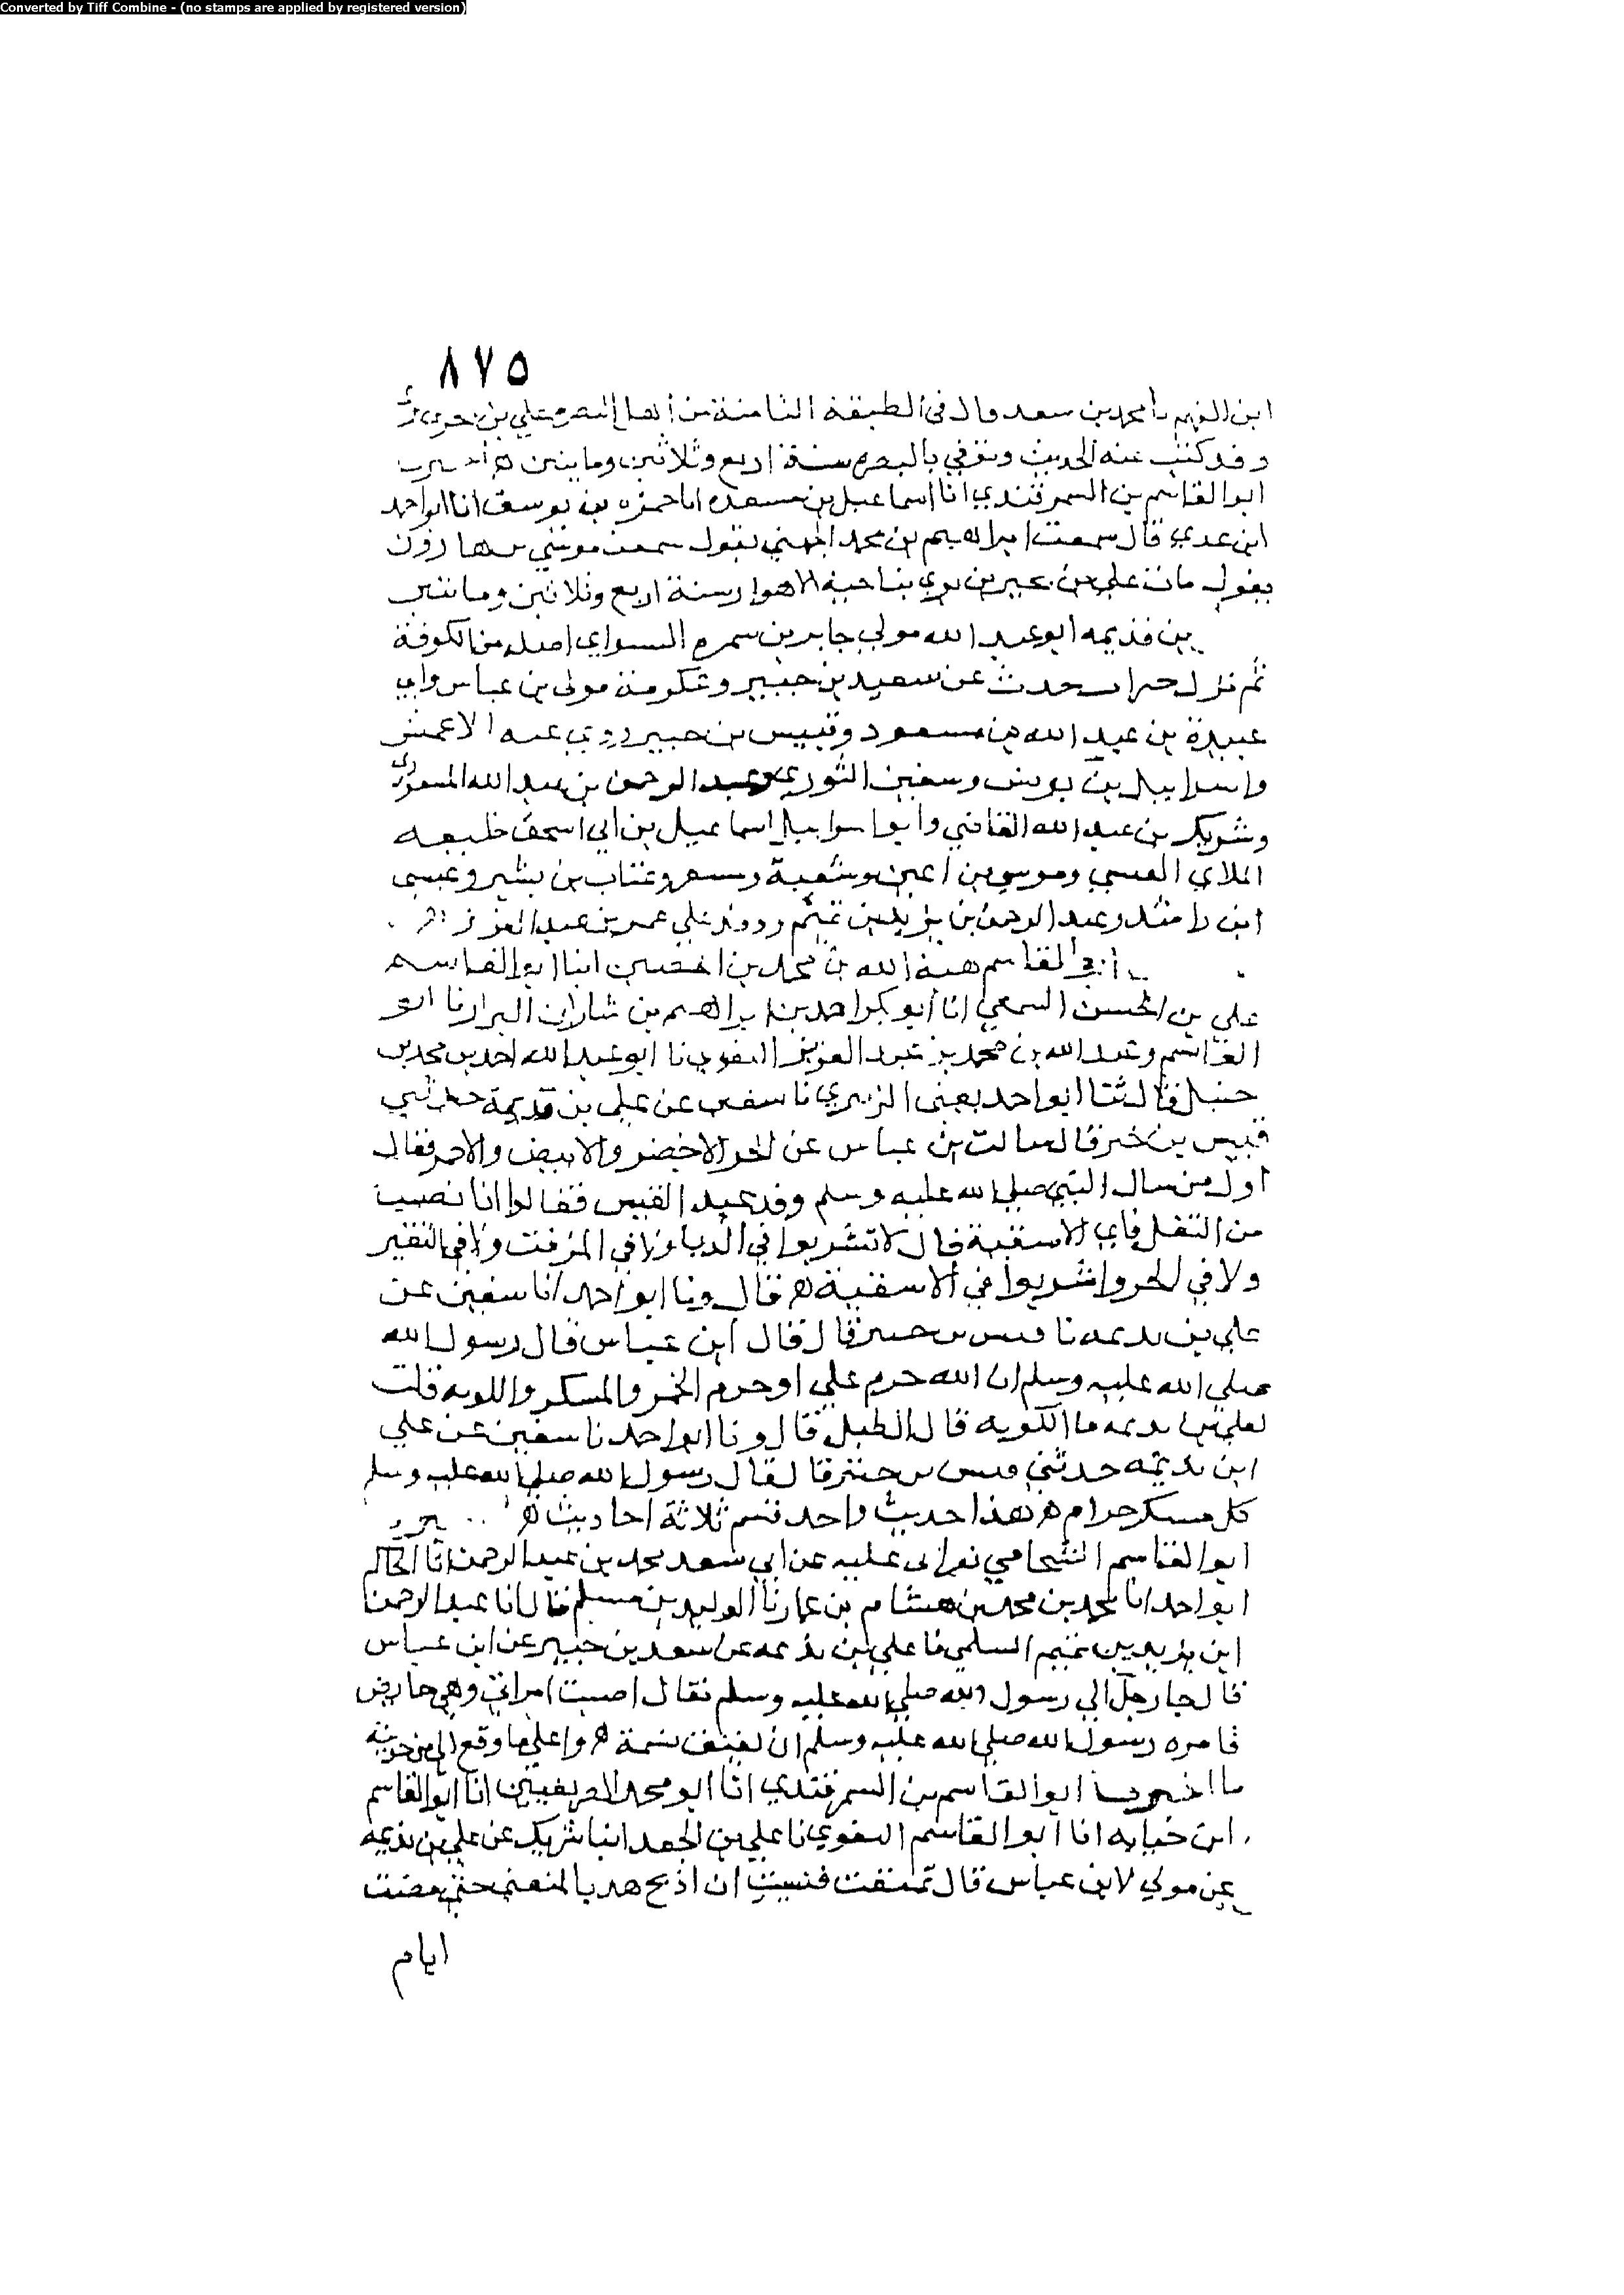 Converted by Tiff Combine - (no stamps are applied by registered version)
٨٧٥
ابن الفهم نا محمد بن سعد قال في الطبقة الثامنة من أهل البصره علي بن
وقد كتبت عنه الحديث وتوفي بالبصره سنة اربع وثلاثين وماىتين ه
ابو القاسم بن السمرقندي انا اسماعيل بن مسعده انا حمزه بن يوسف انا ابو احمد
ابن عدي قال سمعت ابراهيم بن محمد الجهني يقول سمعت موسي بن هارون
يقول مات علي بن بحر بن بري بناحية الاهواز سنة اربع وثلاثين ومائتين
بن بذيمه ابو عبد الله مولي جابر بن سمره السواي اصله من الكوفة
ثم نزل حران حدث عن سعيد بن جبير وعكرمة مولى بن عباس وابي
عبيدة بن عبد الله بن مسعود وقيس بن حبتر روي عنه الاعمش
واسراييل بن يونس وسفين الثوري وعبد الرحمن بن عبد الله المسعودي
وشريك بن عبد الله القاضي وابو اسراييل اسماعيل بن ابي اسحق خليفه
الملاي العبسي وموسي بن اعين وشعبة ومسعر وعتاب بن بشير وعيسى
ابن راشد وعبد الرحمن بن يزيد بن تميم ووفد علي عمر بن عبد العزيز
القاسم هبة الله بن محمد بن الحصين انبا ابو القاسم
علي بن المحسن انا أبو بكر احمد بن ابراهيم بن شاذان البزار نا ابو
القاسم وعبد الله بن محمد بن عبد العزيز البغوي نا ابو عبد الله احمد بن محمد بن
حنبل قال ثنا ابو احمد يعني الزبيري نا سفين عن علي بن بذيمة حدثني
قيس بن حبتر قال سالت بن عباس عن الجر الاخضر والابيض والاحمر فقال
اول من سال النبي صلي الله عليه وسلم وفد عبد القيس فقالوا انا نصيب
من الثفل فاي الاسقية قال لا تشربوا في الدبا ولا في المزفت ولا في النقير
ولا في الجر واشربوا في الاسقية ه قال ونا ابو احمد انا سفين عن
علي بن بديمه نا قيس بن حبتر قال قال ابن عباس قال رسول الله
صلي الله عليه وسلم ان الله حرم علي او حرم الخمر والمسكر والكوبه قلت
لعلي بن بديمه ما الكوبه قال الطبل قال ونا ابو احمد نا سفين عن علي
ابن بديمه حدثني قيس بن حبتر قال قال رسول الله صلي الله عليه وسلم
كل مسكر حرام ه هذا حديث واحد قسم ثلاثة احاديث ه
ابو القاسم الشحامي عن ابي سعد محمد بن عبد الرحمن انا الحاكم
ابو احمد انا محمد بن محمد نا هشام بن عمار نا الوليد بن مسلم قال انا عبد الرحمن
ابن يزيد بن تميم السلمي نا علي بن بذيمه عن سعيد بن جبير عن ابن عباس
قال جا رجل الي رسول الله صلي الله عليه وسلم فقال اصبت امراتي وهي حايض
فامره رسول الله صلي الله عليه وسلم ان يعتق نسمة ه واعلي ما وقع الي من حديثه
ما اخبرنا ابو القاسم بن السمرقندي انا ابو محمد الصريفيني انا ابو القاسم
ابن حبابه انا ابو القاسم البغوي نا علي بن الجعد انبا شريك عن علي بن بذيمه
عن مولي لابن عباس قال تمتعت فنسيت ان اذبح هديا لمتعتي حتى مضت
ايام